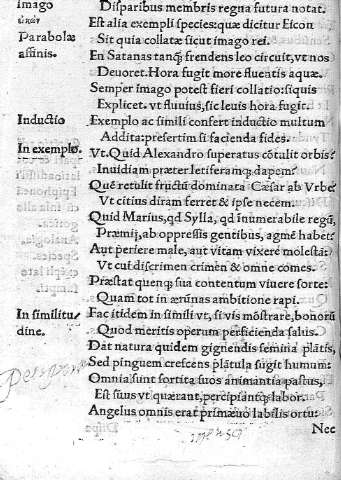 Imago
εἰκών
Parabolæ
affinis.
Inductio
In exemplo.
In similitu/
dine.
Disparibus membris regna futura notat.
Est alia exempli species: quæ dicitur Eicon
Sit quia collatæ sicut imago rei.
En Satanas tanq̃ frendens leo circuit, vt nos
Deuoret. Hora fugit more fluentis aquæ.
Semper imago potest fieri collatio: siquis
Explicet. vt fluuius, sic leuis hora fugit.
Exemplo ac simili confert inductio multum
Addita: presertim si facienda fides.
Vt. Quid Alexandro superatus cõtulit orbis?
Inuidiam præter letiferamq̃ dapem?
Quẽ retulit fructũ dominata Cæsar ab Vrbe?
Vt citius diram ferret & ipse necem.
Quid Marius, qd Sylla, qd inumerabile regũ,
Præmij, ab oppressis gentibus, agmẽ habet?
Aut periere male, aut vitam vixere molestã:
Vt cui discrimen crimẽ & omne comes.
Præstat quenq̃ sua contentum viuere sorte:
Quam tot in ærũnas ambitione rapi.
Fac itidem in simili vt, si vis mõstrare, bonorũ
Quod meritis operum perficienda salus.
Dat natura quidem gignendis semina plãtis,
Sed pinguem crescens plãtula sugit humum:
Omnia sunt sortita suos animantia pastus,
Est suus vt quærant, percipiantq̃ labor.
Angelus omnis erat primæuo labilis ortu:
Nec